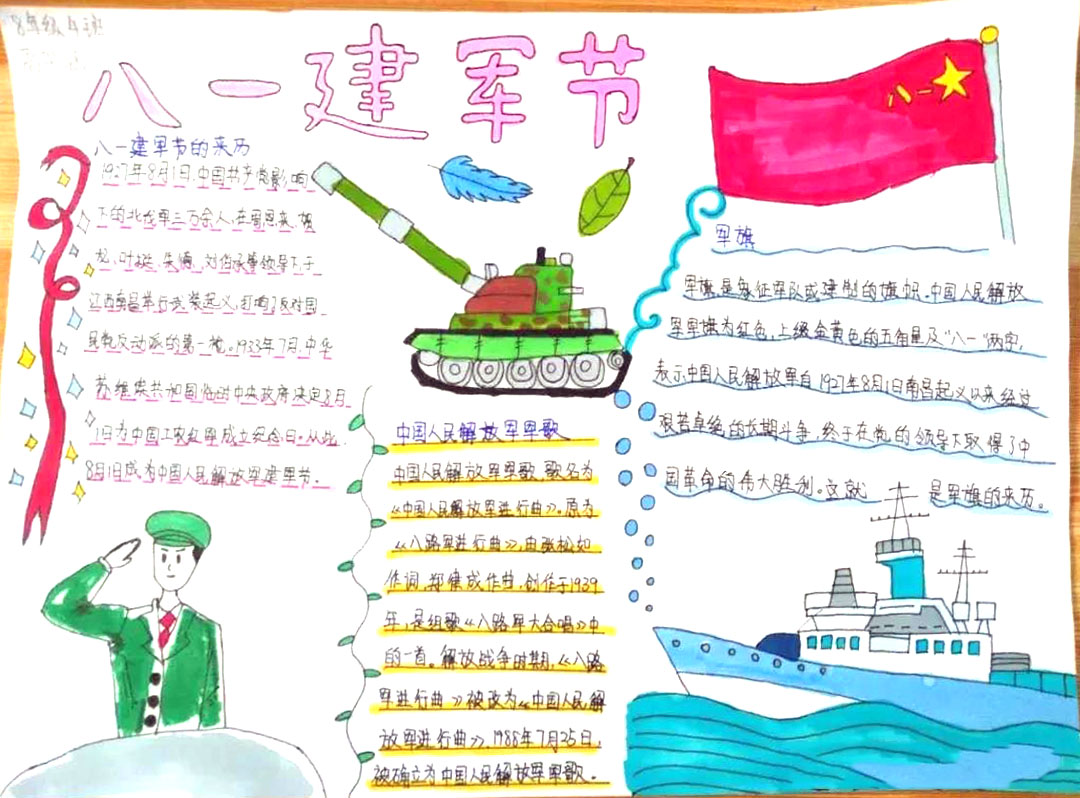 8年级4班
八一建军节
八一
八一建军节的来历
1927年8月1日,中国共产党影响
下的北伐军三万余人,在周恩来、贺
龙、叶挺、朱德、刘伯承等领导下,于
江西南昌举行武装起义,打响了反对国
民党反动派的第一枪。1933年7月,中华
苏维埃共和国临时中央政府决定8月
1日为中国工农红军成立纪念日。从此,
8月1日成为中国人民解放军建军节。
中国人民解放军军歌
中国人民解放军军歌,歌名为
《中国人民解放军进行曲》。原为
《八路军进行曲》,由张松如
作词,郑律成作曲,创作于1939
年,是组歌《八路军大合唱》中
的一首。解放战争时期,《八路
军进行曲》被改为《中国人民解
放军进行曲》,1988年7月25日,
被确立为中国人民解放军军歌。
军旗
军旗是象征军队或建制的旗帜。中国人民解放
军军旗为红色,上缀金黄色的五角星及“八一”两字,
表示中国人民解放军自1927年8月1日南昌起义以来经过
艰苦卓绝的长期斗争,终于在党的领导下取得了中
国革命的伟大胜利。这就是军旗的来历。